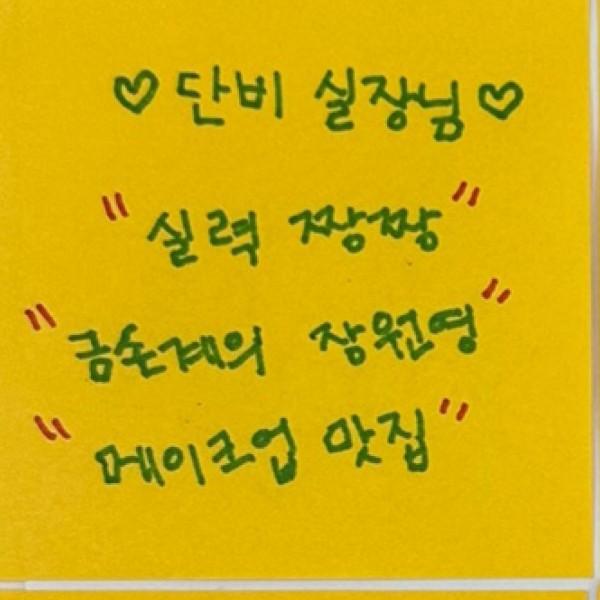 ♡ 단비 실장님 ♡
"실력 짱짱"
"금손계의 장원영"
"메이크업 맛집"